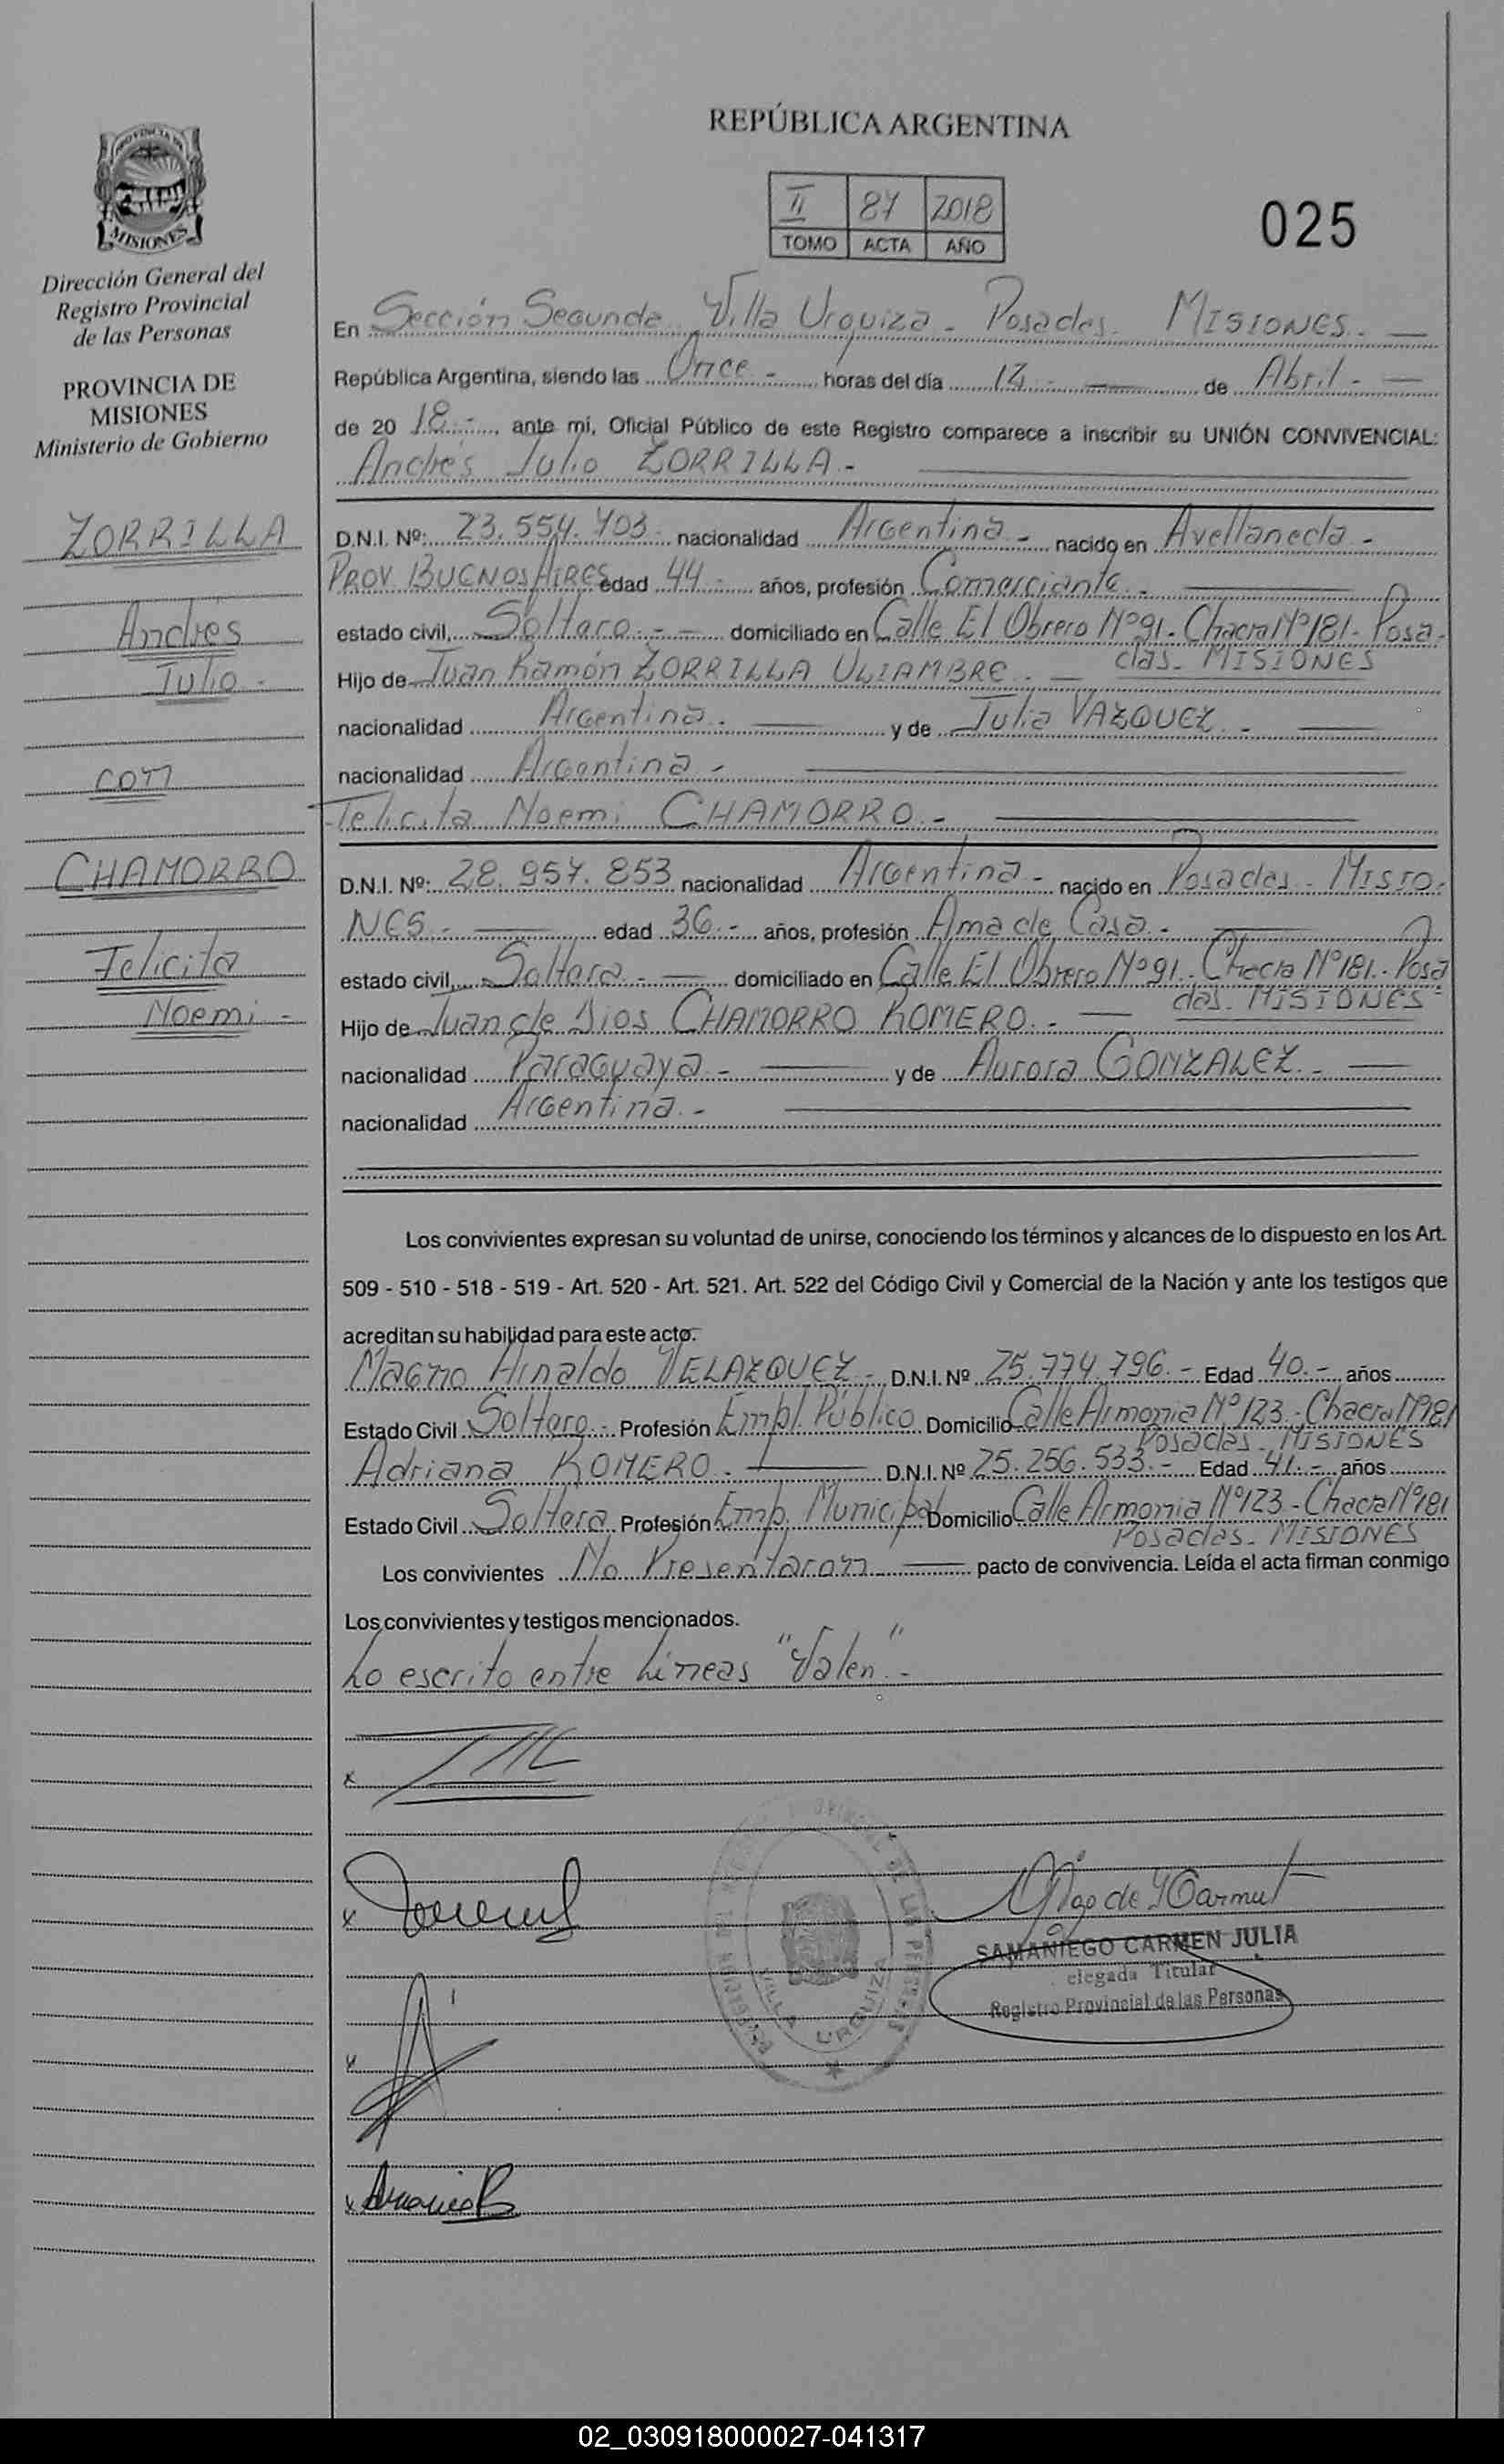 REPÚBLICA ARGENTINA
II 87 2018
TOMO ACTA AÑO
025
MISIONES
Dirección General del
Registro Provincial
de las Personas
PROVINCIA DE
MISIONES
Ministerio de Gobierno
ZORRILLA
Andrés
Julio -
con
CHAMORRO
Felicita
Noemi -
En Sección Segunda Villa Urquiza - Posadas - MISIONES. -
República Argentina, siendo las Once - horas del día de Abril. -
de 20 18 - , ante mí, Oficial Público de este Registro comparece a inscribir su UNIÓN CONVIVENCIAL:
Andres Julio ZORRILLA -
D.N.I. Nº: 23.554.703 - nacionalidad Argentina - nacido en Avellaneda -
PROV. BUENOS AIRES edad 44 - años, profesión Comerciante. -
estado civil, Soltero. - - domiciliado en Calle El Obrero Nº 91 - Chacra Nº 181 - Posa-
das - MISIONES
Hijo de Juan Ramón ZORRILLA ULIAMBRE. -
nacionalidad Argentina. - y de Julia VAZQUEZ. -
nacionalidad Argentina -
Felicita Noemi CHAMORRO. -
D.N.I. Nº: 28.957.853 nacionalidad Argentina - nacido en Posadas - MISIO-
NES - edad 36. - años, profesión Ama de Casa. -
estado civil, Soltera. - domiciliado en Calle El Obrero Nº 91 - Chacra Nº 181 - Posa
das - MISIONES -
Hijo de Juan de Dios CHAMORRO ROMERO. -
nacionalidad Paraguaya - y de Aurora GONZALEZ. -
nacionalidad Argentina. -
Los convivientes expresan su voluntad de unirse, conociendo los términos y alcances de lo dispuesto en los Art.
509 - 510 - 518 - 519 - Art. 520 - Art. 521. Art. 522 del Código Civil y Comercial de la Nación y ante los testigos que
acreditan su habilidad para este acto.
Magno Arnaldo VELAZQUEZ - D.N.I. Nº 25.774.796. - Edad 40. - años
Estado Civil Soltero - Profesión Empl. Público Domicilio Calle Armonia Nº 123 - Chacra Nº 181
Posadas - MISIONES
Adriana ROMERO - D.N.I. Nº 25.256.533. - Edad 41. - años
Estado Civil Soltera Profesión Emp. Municipal Domicilio Calle Armonia Nº 123 - Chacra Nº 181
Posadas - MISIONES
Los convivientes No Presentaron pacto de convivencia. Leída el acta firman conmigo
Los convivientes y testigos mencionados.
Lo escrito entre Lineas "Valen" -
SAMANIEGO CARMEN JULIA
elegada Titular
Registro Provincial de las Personas
VILLA URQUIZA
02_030918000027-041317